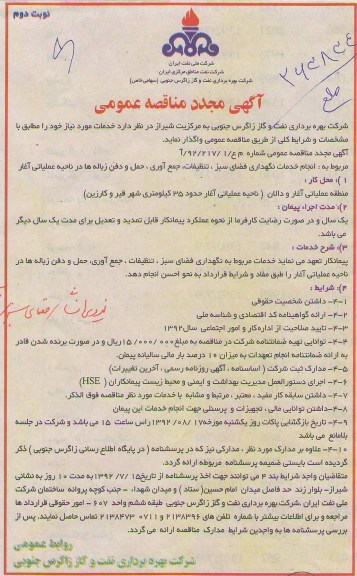 نوبت دوم
شرکت ملی نفت ایران
شرکت نفت مناطق مرکزی ایران
شرکت بهره برداری نفت و گاز زاگرس جنوبی (سهامی خاص)
آگهی مجدد مناقصه عمومی
شرکت بهره برداری نفت و گاز زاگرس جنوبی به مرکزیت شیراز در نظر دارد خدمات مورد نیاز خود را مطابق با
مشخصات و شرایط کلی از طریق مناقصه عمومی واگذار نماید.
آگهی مجدد مناقصه عمومی شماره م ع/۹۲/۲۱۷/۱/آ
مربوط به : انجام خدمات نگهداری فضای سبز ، تنظیفات، جمع آوری ، حمل و دفن زباله ها در ناحیه عملیاتی آغار
۱ ): محل کار :
منطقه عملیاتی آغار و دالان ( ناحیه عملیاتی آغار حدود ۳۵ کیلومتری شهر قیر و کارزین)
۲): مدت اجراء پیمان :
یک سال و در صورت رضایت کارفرما از نحوه عملکرد پیمانکار قابل تمدید و تعدیل برای مدت یک سال دیگر
می باشد.
۳): شرح خدمات :
پیمانکار تعهد می نماید خدمات مربوط به نگهداری فضای سبز ، تنظیفات ، جمع آوری، حمل و دفن زباله ها در
ناحیه عملیاتی آغار را طبق مفاد و شرایط قرارداد به نحو احسن انجام دهد.
۴): شرایط :
۱-۴- داشتن شخصیت حقوقی
۲-۴- ارائه گواهینامه کد اقتصادی و شناسه ملی
۳-۴- تایید صلاحیت از اداره کار و امور اجتماعی سال۱۳۹۲
۴-۴- توانایی تهیه ضمانتنامه شرکت در مناقصه به مبلغ۱۵/۰۰۰/۰۰۰ریال و در صورت برنده شدن قادر
به ارائه ضمانتنامه انجام تعهدات به میزان ۱۰ درصد بار مالی سالیانه پیمان.
۵-۴- مدارک ثبت شرکت ( اساسنامه ، آگهی روزنامه رسمی ، آخرین تغییرات)
۶-۴- اجرای دستورالعمل مدیریت بهداشت و ایمنی و محیط زیست پیمانکاران ( HSE )
۷-۴- داشتن سابقه کار مفید ، معتبر ، مرتبط و مشابه با خدمات مورد نظر مناقصه فوق الذکر.
۸-۴-داشتن توانایی مالی ، تجهیزات و پرسنلی جهت انجام خدمات این پیمان
۹-۴- تاریخ بازگشایی پاکات روز یکشنبه مورخه۱۷/ ۰۸/ ۱۳۹۲راس ساعت ۱۵ می باشد و شرکت در جلسه
بلامانع می باشد
۱۰-۴- علاوه بر مدارک مورد نظر ، مدارکی نیز که در پرسشنامه ( در پایگاه اطلاع رسانی زاگرس جنوبی ) ذکر
گردیده است بایستی ضمیمه پرسشنامه مربوطه ارائه گردد.
متقاضیان واجد شرایط بند ۴ می توانند جهت اخذ پرسشنامه از تاریخ۱۵/ ۷/ ۱۳۹۲ به مدت ۱۰ روز به نشانی
شیراز- بلوار زند حد فاصل میدان امام حسین( ستاد ) و میدان شهداء - جنب کوچه پروانه ساختمان شرکت
ملی نفت ایران شرکت بهره برداری نفت و گاز زاگرس جنوبی طبقه ششم واحد ۶۰۷ - امور حقوقی قرارداد ها
مراجعه و برای اطلاعات بیشتر با شماره تلفن های ۲۱۳۸۳۹۶ و ۰۷۱۱ ۲۱۳۸۴۷۳ تماس حاصل نمایند. پس از
بررسی پرسشنامه ها به واجدین شرایط مدارک مناقصه ارائه می گردد.
روابط عمومی
شرکت بهره برداری نفت و گاز زاگرس جنوبی